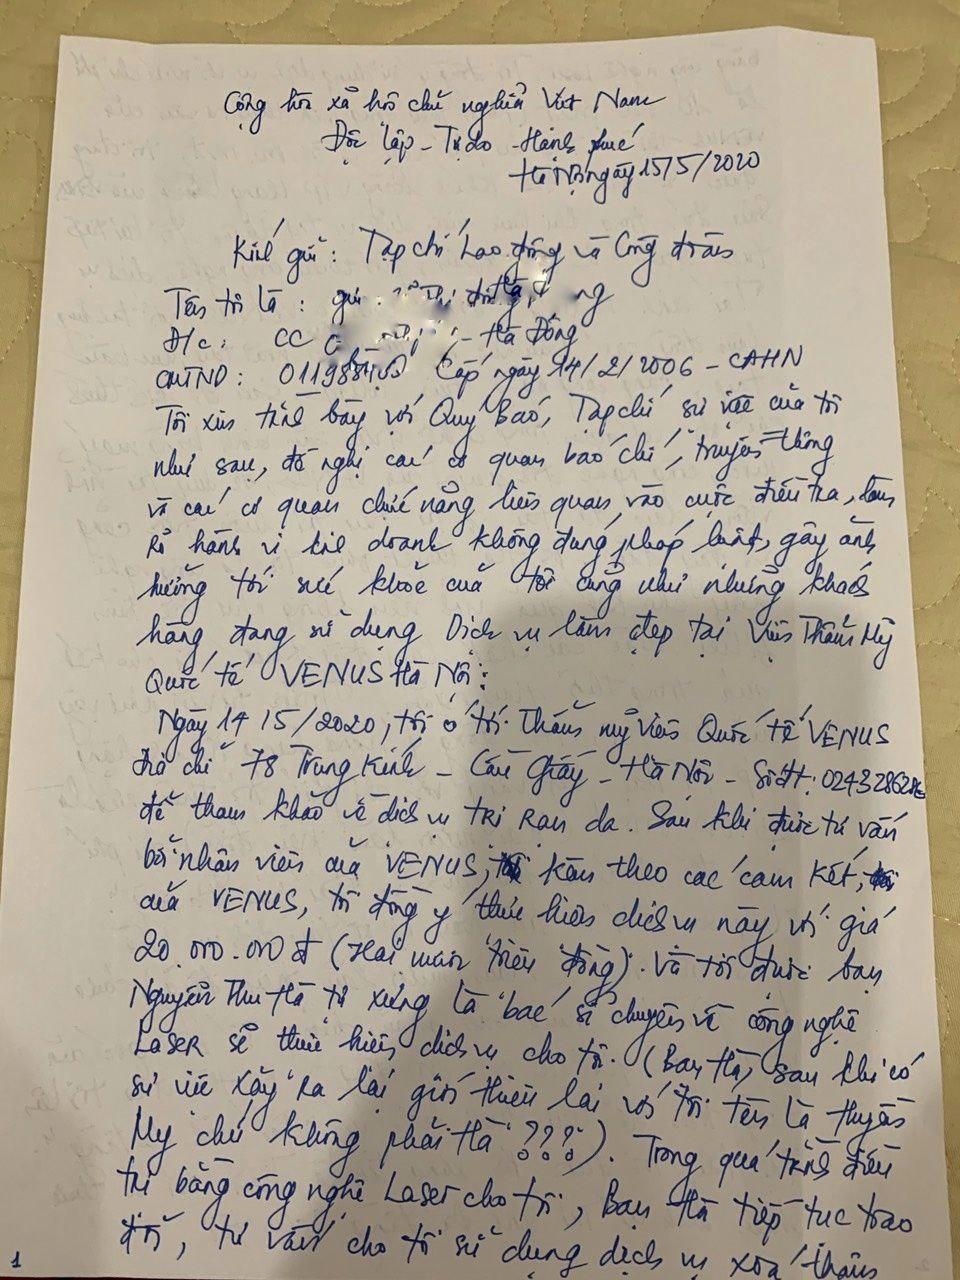 Cộng hòa xã hội chủ nghĩa Việt Nam
Độc lập - Tự do - Hạnh phúc
Hà Nội ngày 15/5/2020
Kính gửi: Tạp chí Lao động và Công đoàn
Tên tôi là:
Đ/c: CC - Hà Đông
CMTND: Cấp ngày 14/2/2006 - CAHN
Tôi xin trình bày với Quý Báo, Tạp chí sự việc của tôi
như sau, đề nghị các cơ quan báo chí, truyền thông
và các cơ quan chức năng liên quan vào cuộc điều tra, làm
rõ hành vi kinh doanh không đúng pháp luật, gây ảnh
hưởng tới sức khỏe của tôi cũng như những khách
hàng đang sử dụng Dịch vụ làm đẹp tại Viện Thẩm Mỹ
Quốc tế VENUS Hà Nội:
Ngày 14/5/2020, tôi có tới Thẩm mỹ viện Quốc tế VENUS
địa chỉ 78 Trung Kính - Cầu Giấy - Hà Nội - Số ĐT: 024328628
để tham khảo về dịch vụ trị rạn da. Sau khi được tư vấn
bởi nhân viên của VENUS, kèm theo các cam kết,
của VENUS, tôi đồng ý thực hiện dịch vụ này với giá
20.000.000đ (Hai mươi triệu đồng). Và tôi được bạn
Nguyễn Thu Hà tự xưng là bác sĩ chuyên về công nghệ
Laser sẽ thực hiện dịch vụ cho tôi. (Bạn Hà, sau khi có
sự việc xảy ra lại giới thiệu lại với tôi tên là Huyền
My chứ không phải Hà ???). Trong quá trình điều
trị bằng công nghệ Laser cho tôi, Bạn Hà tiếp tục trao
đổi, tư vấn cho tôi sử dụng dịch vụ xóa thâm
1